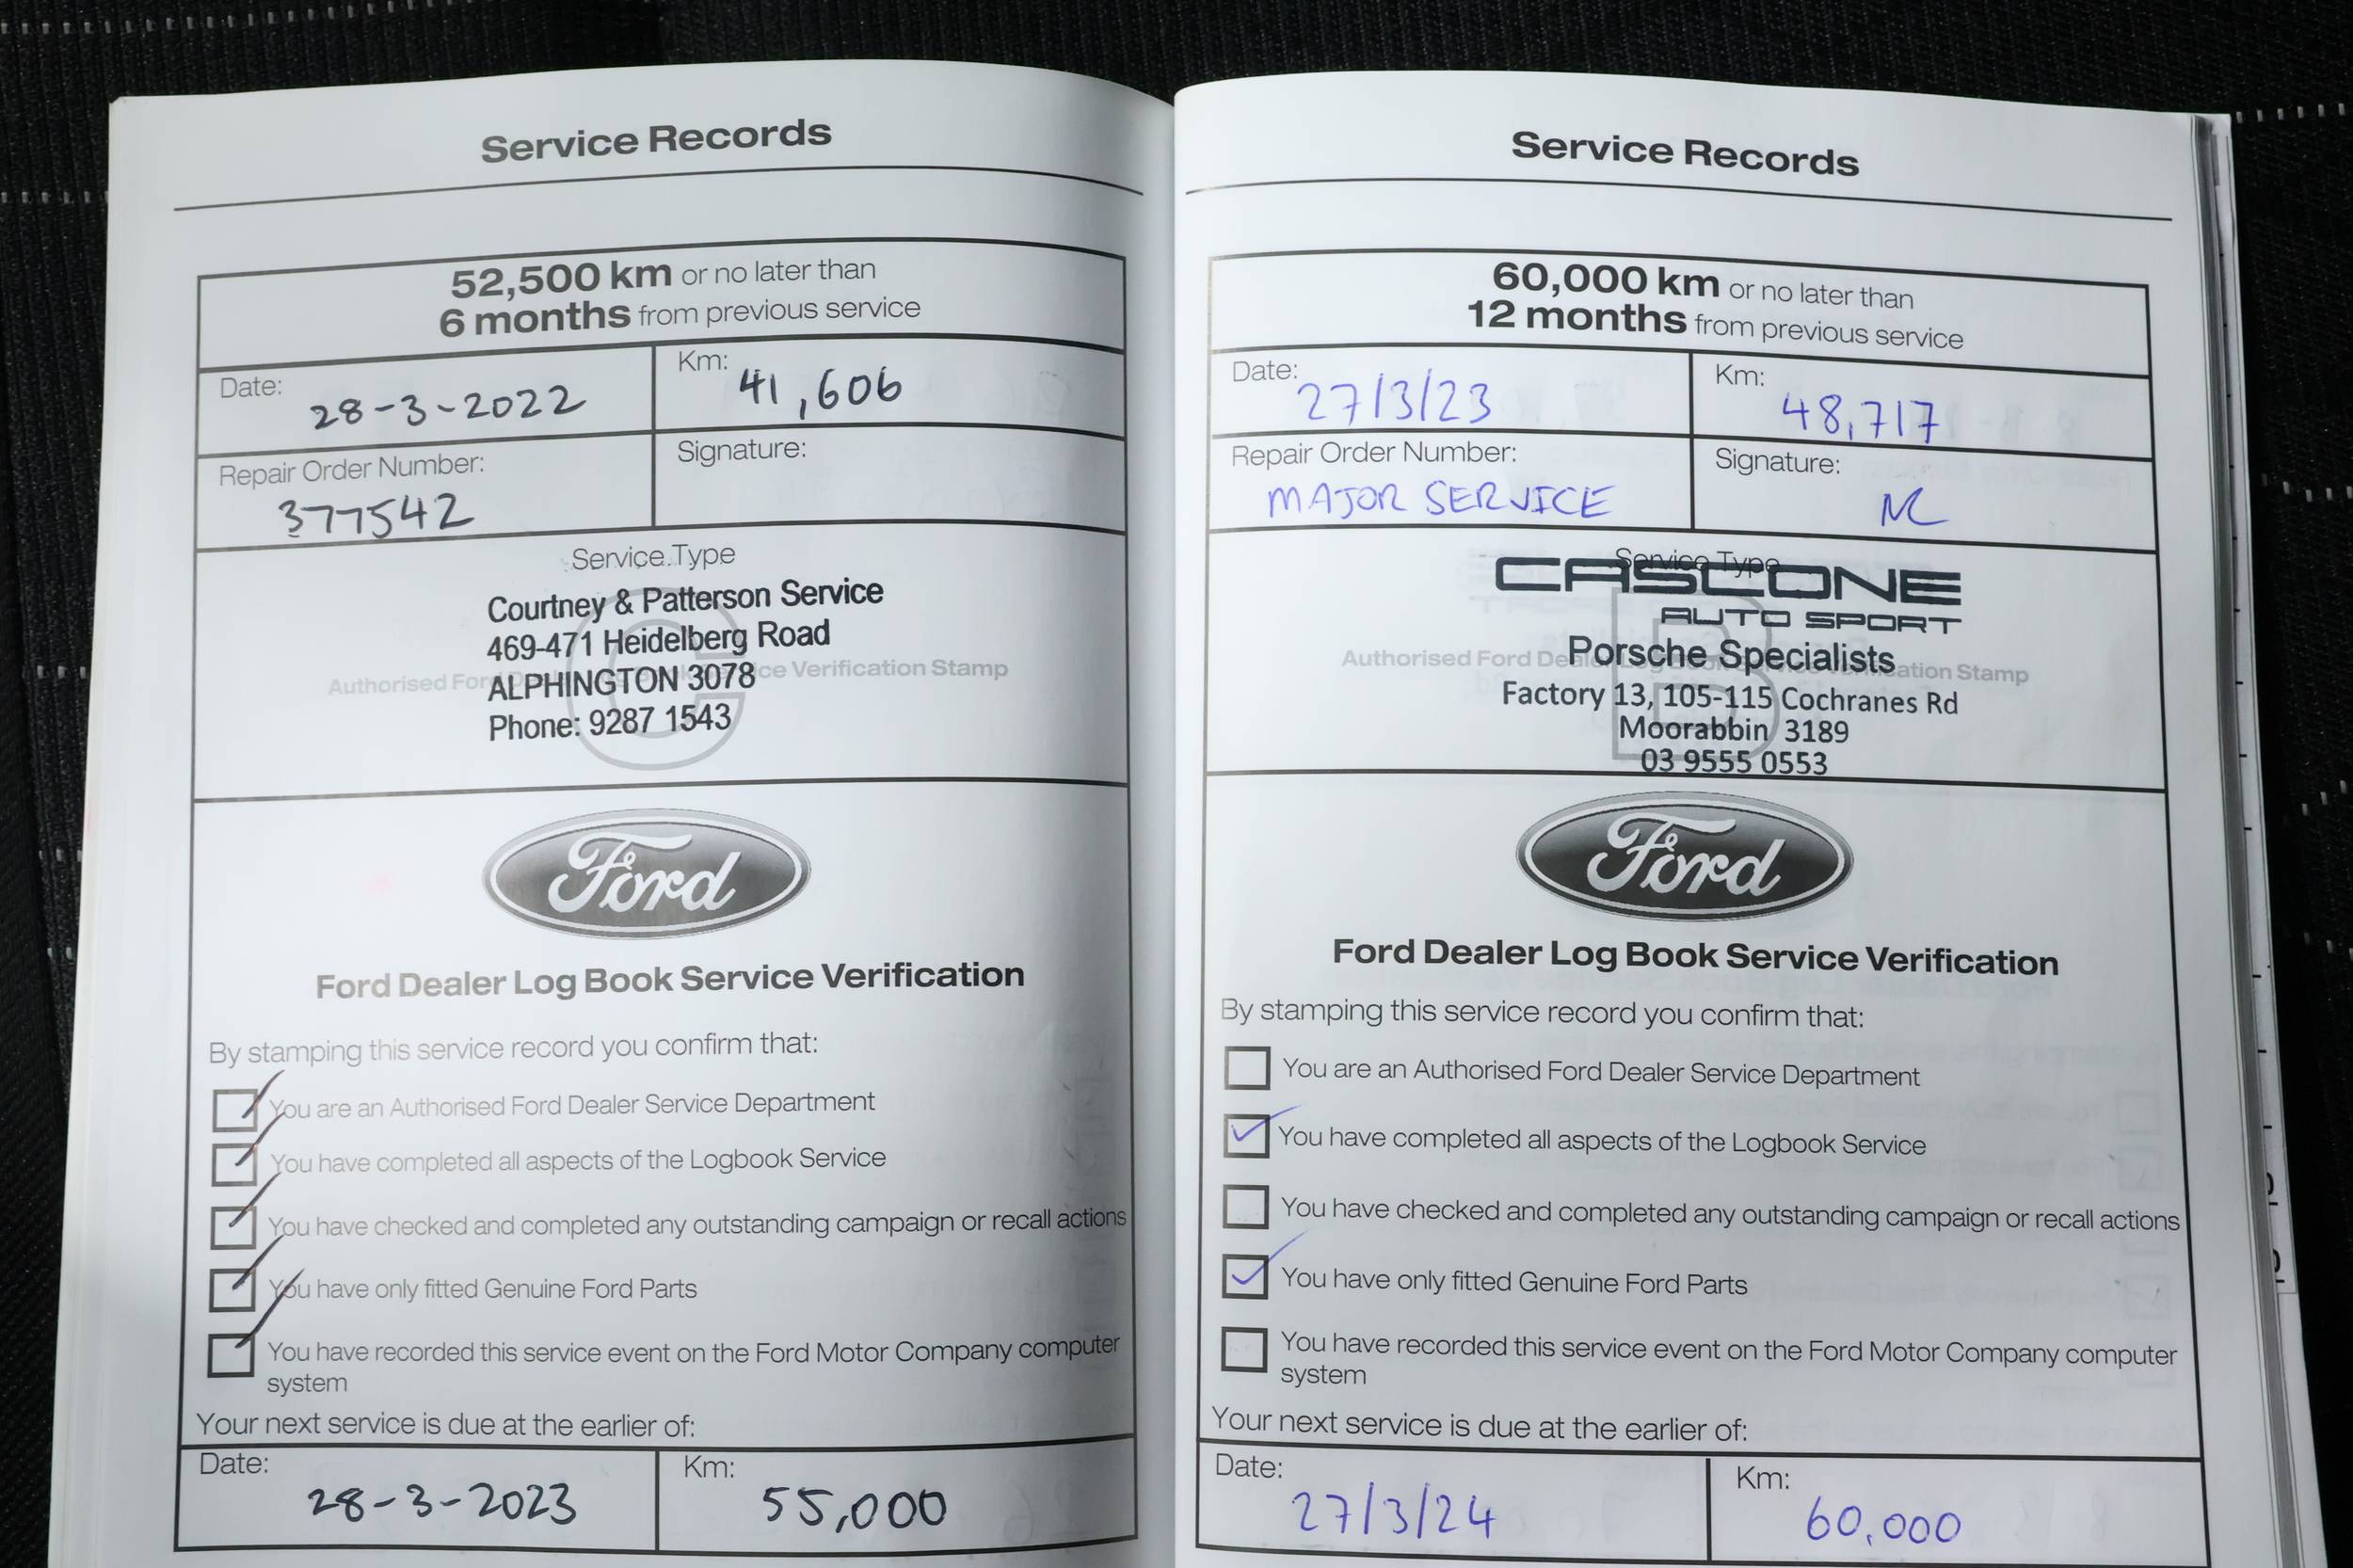 Service Records
52,500 km or no later than
6 months from previous service
Date: 28-3-2022
Km: 41,606
Repair Order Number: 377542
Signature:
Service Type
Courtney & Patterson Service
469-471 Heidelberg Road
ALPHINGTON 3078
Phone: 9287 1543
Authorised Ford Service Verification Stamp
Ford
Ford Dealer Log Book Service Verification
By stamping this service record you confirm that:
You are an Authorised Ford Dealer Service Department
You have completed all aspects of the Logbook Service
You have checked and completed any outstanding campaign or recall actions
You have only fitted Genuine Ford Parts
You have recorded this service event on the Ford Motor Company computer
system
Your next service is due at the earlier of:
Date: 28-3-2023
Km: 55,000
Service Records
60,000 km or no later than
12 months from previous service
Date: 27/3/23
Km: 48,717
Repair Order Number: MAJOR SERVICE
Signature:
Service Type
CASCONE
AUTO SPORT
Porsche Specialists
Authorised Ford Stamp
Factory 13, 105-115 Cochranes Rd
Moorabbin 3189
03 9555 0553
B
Ford
Ford Dealer Log Book Service Verification
By stamping this service record you confirm that:
You are an Authorised Ford Dealer Service Department
You have completed all aspects of the Logbook Service
You have checked and completed any outstanding campaign or recall actions
You have only fitted Genuine Ford Parts
You have recorded this service event on the Ford Motor Company computer
system
Your next service is due at the earlier of:
Date: 27/3/24
Km: 60,000